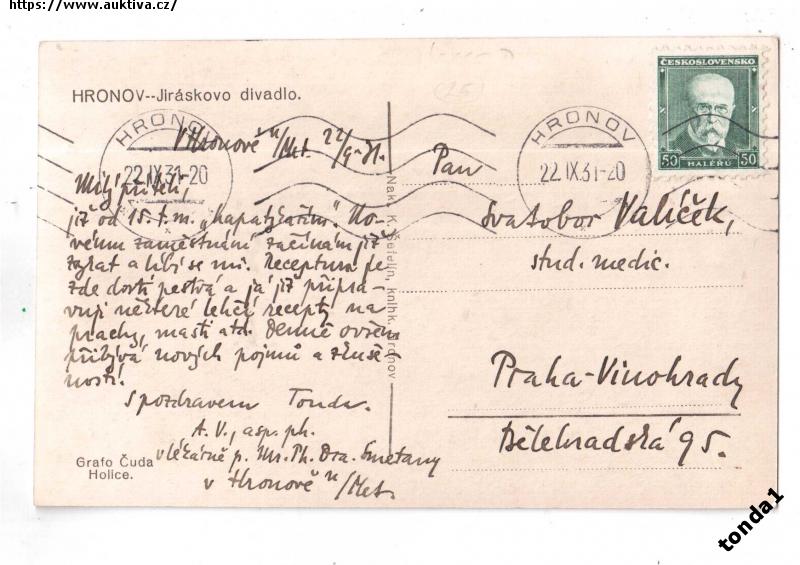 https://www.auktiva.cz/
HRONOV--Jiráskovo divadlo.
HRONOV
22.IX.31-20
HRONOV
22.IX.31-20
ČESKOSLOVENSKO
50 HALÉŘŮ 50
V Hronově n/Met. 22/9-31.
Milý příteli,
již od 15. t.m. "kapatykařím". No-
vému zaměstnání začínám již
zvykat a líbí se mi. Receptura je
zde dosti pestrá a já již připra-
vuji některé lehčí recepty na
prachy, masti atd. Denně ovšem
přibývá nových pojmů a zkuše-
ností!
S pozdravem Tonda.
A.V., asp. ph.
v lékárně p. Mr. Ph. Dra. Smetany
v Hronově n/Met.
Grafo Čuda
Holice.
Nakl. K. knihk. Hronov
Pan
Svatobor Valíček,
stud. medic.
Praha-Vinohrady
Bělehradská 95.
tonda1